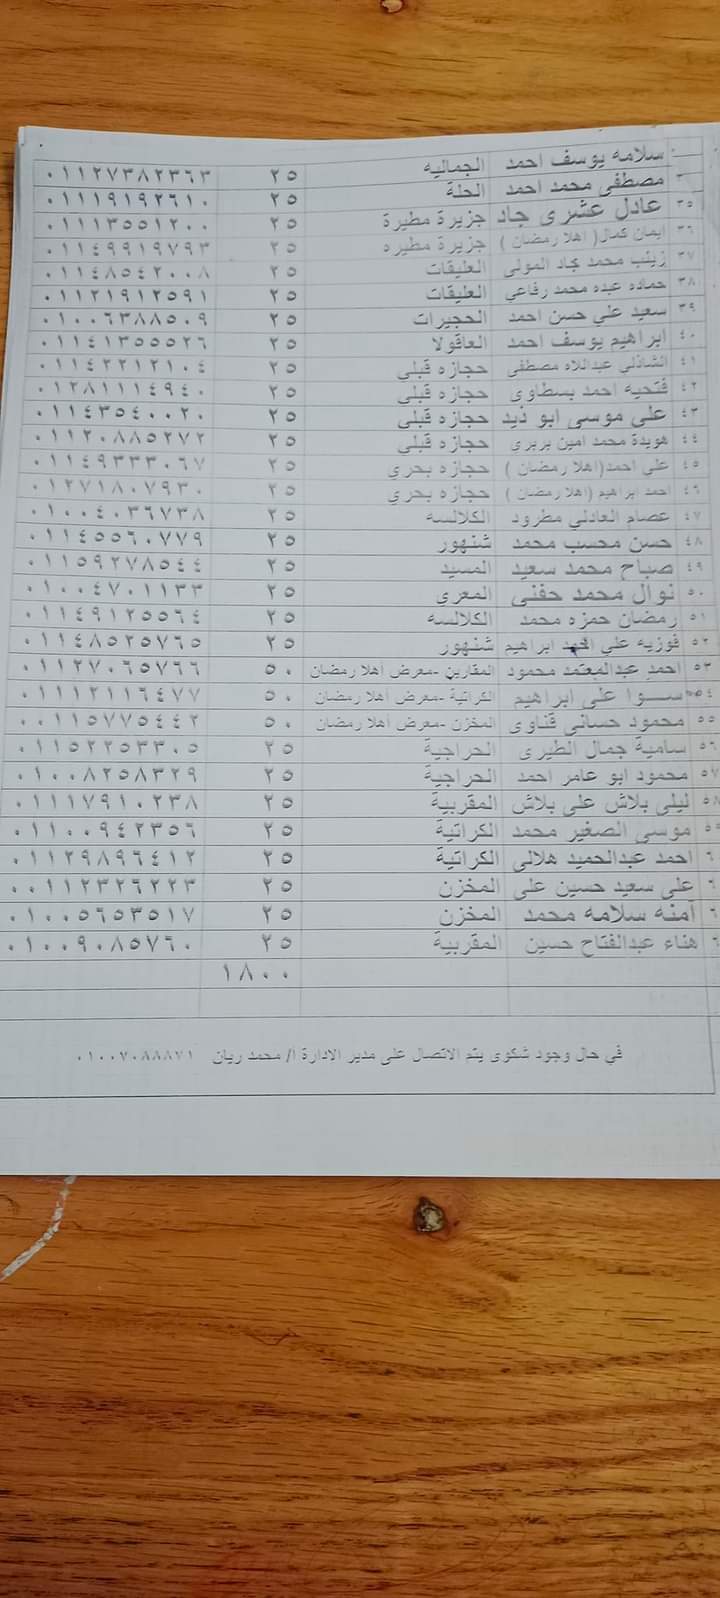 سلامه يوسف احمد الجماليه ٢٥ ٠١١٢٧٣٨٢٣٦٣
مصطفى محمد احمد الحلة ٢٥ ٠١١١٩١٩٢٦١٠
٣٥ عادل عشرى جاد جزيرة مطيرة ٢٥ ٠١١١٣٥٥١٢٠٠
٣٦ ايمان كمال (اهلا رمضان) جزيرة مطيره ٢٥ ٠١١٤٩٩١٩٧٩٣
٣٧ زينب محمد جاد المولى العليقات ٢٥ ٠١١٤٨٥٤٢٠٠٨
٣٨ حماده عبده محمد رفاعي العليقات ٢٥ ٠١١٢١٩١٢٥٩١
٣٩ سعيد علي حسن احمد الحجيرات ٢٥ ٠١٠٠٦٣٨٨٥٠٩
٤٠ ابراهيم يوسف احمد العاقولا ٢٥ ٠١١٤١٣٥٥٥٢٦
٤١ الشاذلي عبداللاه مصطفى حجازه قبلي ٢٥ ٠١١٤٢٢١٢١٠٤
٤٢ فتحيه احمد بسطاوى حجازه قبلي ٢٥ ٠١٢٨١١١٤٩٤٠
٤٣ على موسى ابو زيد حجازه قبلي ٢٥ ٠١١٤٣٥٤٠٠٢٠
٤٤ هويدة محمد امين بربرى حجازه قبلي ٢٥ ٠١١٢٠٨٨٥٢٧٢
٤٥ علي احمد (اهلا رمضان) حجازه بحري ٢٥ ٠١١٤٩٣٣٣٠٦٧
٤٦ احمد ابراهيم (اهلا رمضان) حجازه بحري ٢٥ ٠١٢٧١٨٠٧٩٣٠
٤٧ عصام العادلي مطرود الكلالسه ٢٥ ٠١٠٠٤٠٣٦٧٣٨
٤٨ حسن محسب محمد شنهور ٢٥ ٠١١٤٥٥٦٠٧٧٩
٤٩ صباح محمد سعيد المسيد ٢٥ ٠١١٥٩٢٧٨٥٤٤
٥٠ نوال محمد حفنى المعري ٢٥ ٠١٠٠٤٧٠١١٣٣
٥١ رمضان حمزه محمد الكلالسه ٢٥ ٠١١٤٩١٢٥٥٦٤
٥٢ فوزيه علي احمد ابراهيم شنهور ٢٥ ٠١١٤٨٥٢٥٧٦٥
٥٣ احمد عبدالمعتمد محمود المقاربن -معرض اهلا رمضان ٥٠ ٠١١٢٧٠٦٥٧٦٦
٥٤ ســوا على ابراهيم الكراتية -معرض اهلا رمضان ٥٠ ٠١١١٢١١٦٤٧٧
٥٥ محمود حساني قناوى المخزن -معرض اهلا رمضان ٥٠ ٠٠١١٥٧٧٥٤٤٢
٥٦ سامية جمال الطيرى الحراجية ٢٥ ٠١١٥٢٢٥٣٣٠٥
٥٧ محمود ابو عامر احمد الحراجية ٢٥ ٠١٠٠٨٢٥٨٣٢٩
٥٨ ليلى بلاش على بلاش المقربية ٢٥ ٠١١١٧٩١٠٢٣٨
٥٩ موسى الصغير محمد الكراتية ٢٥ ٠١١٠٠٩٤٢٣٥٦
٦ احمد عبدالحميد هلالى الكراتية ٢٥ ٠١١٢٩٨٩٦٤١٢
٦ على سعيد حسين على المخزن ٢٥ ٠٠١١٢٣٢٦٢٢٣
٦ آمنه سلامه محمد المخزن ٢٥ ٠١٠٠٥٦٥٣٥١٧
٦ هناء عبدالفتاح حسين المقربية ٢٥ ٠١٠٠٩٠٨٥٧٦٠
١٨٠٠
في حال وجود شكوى يتم الاتصال على مدير الادارة ا/ محمد ريان ٠١٠٠٧٠٨٨٨٧١